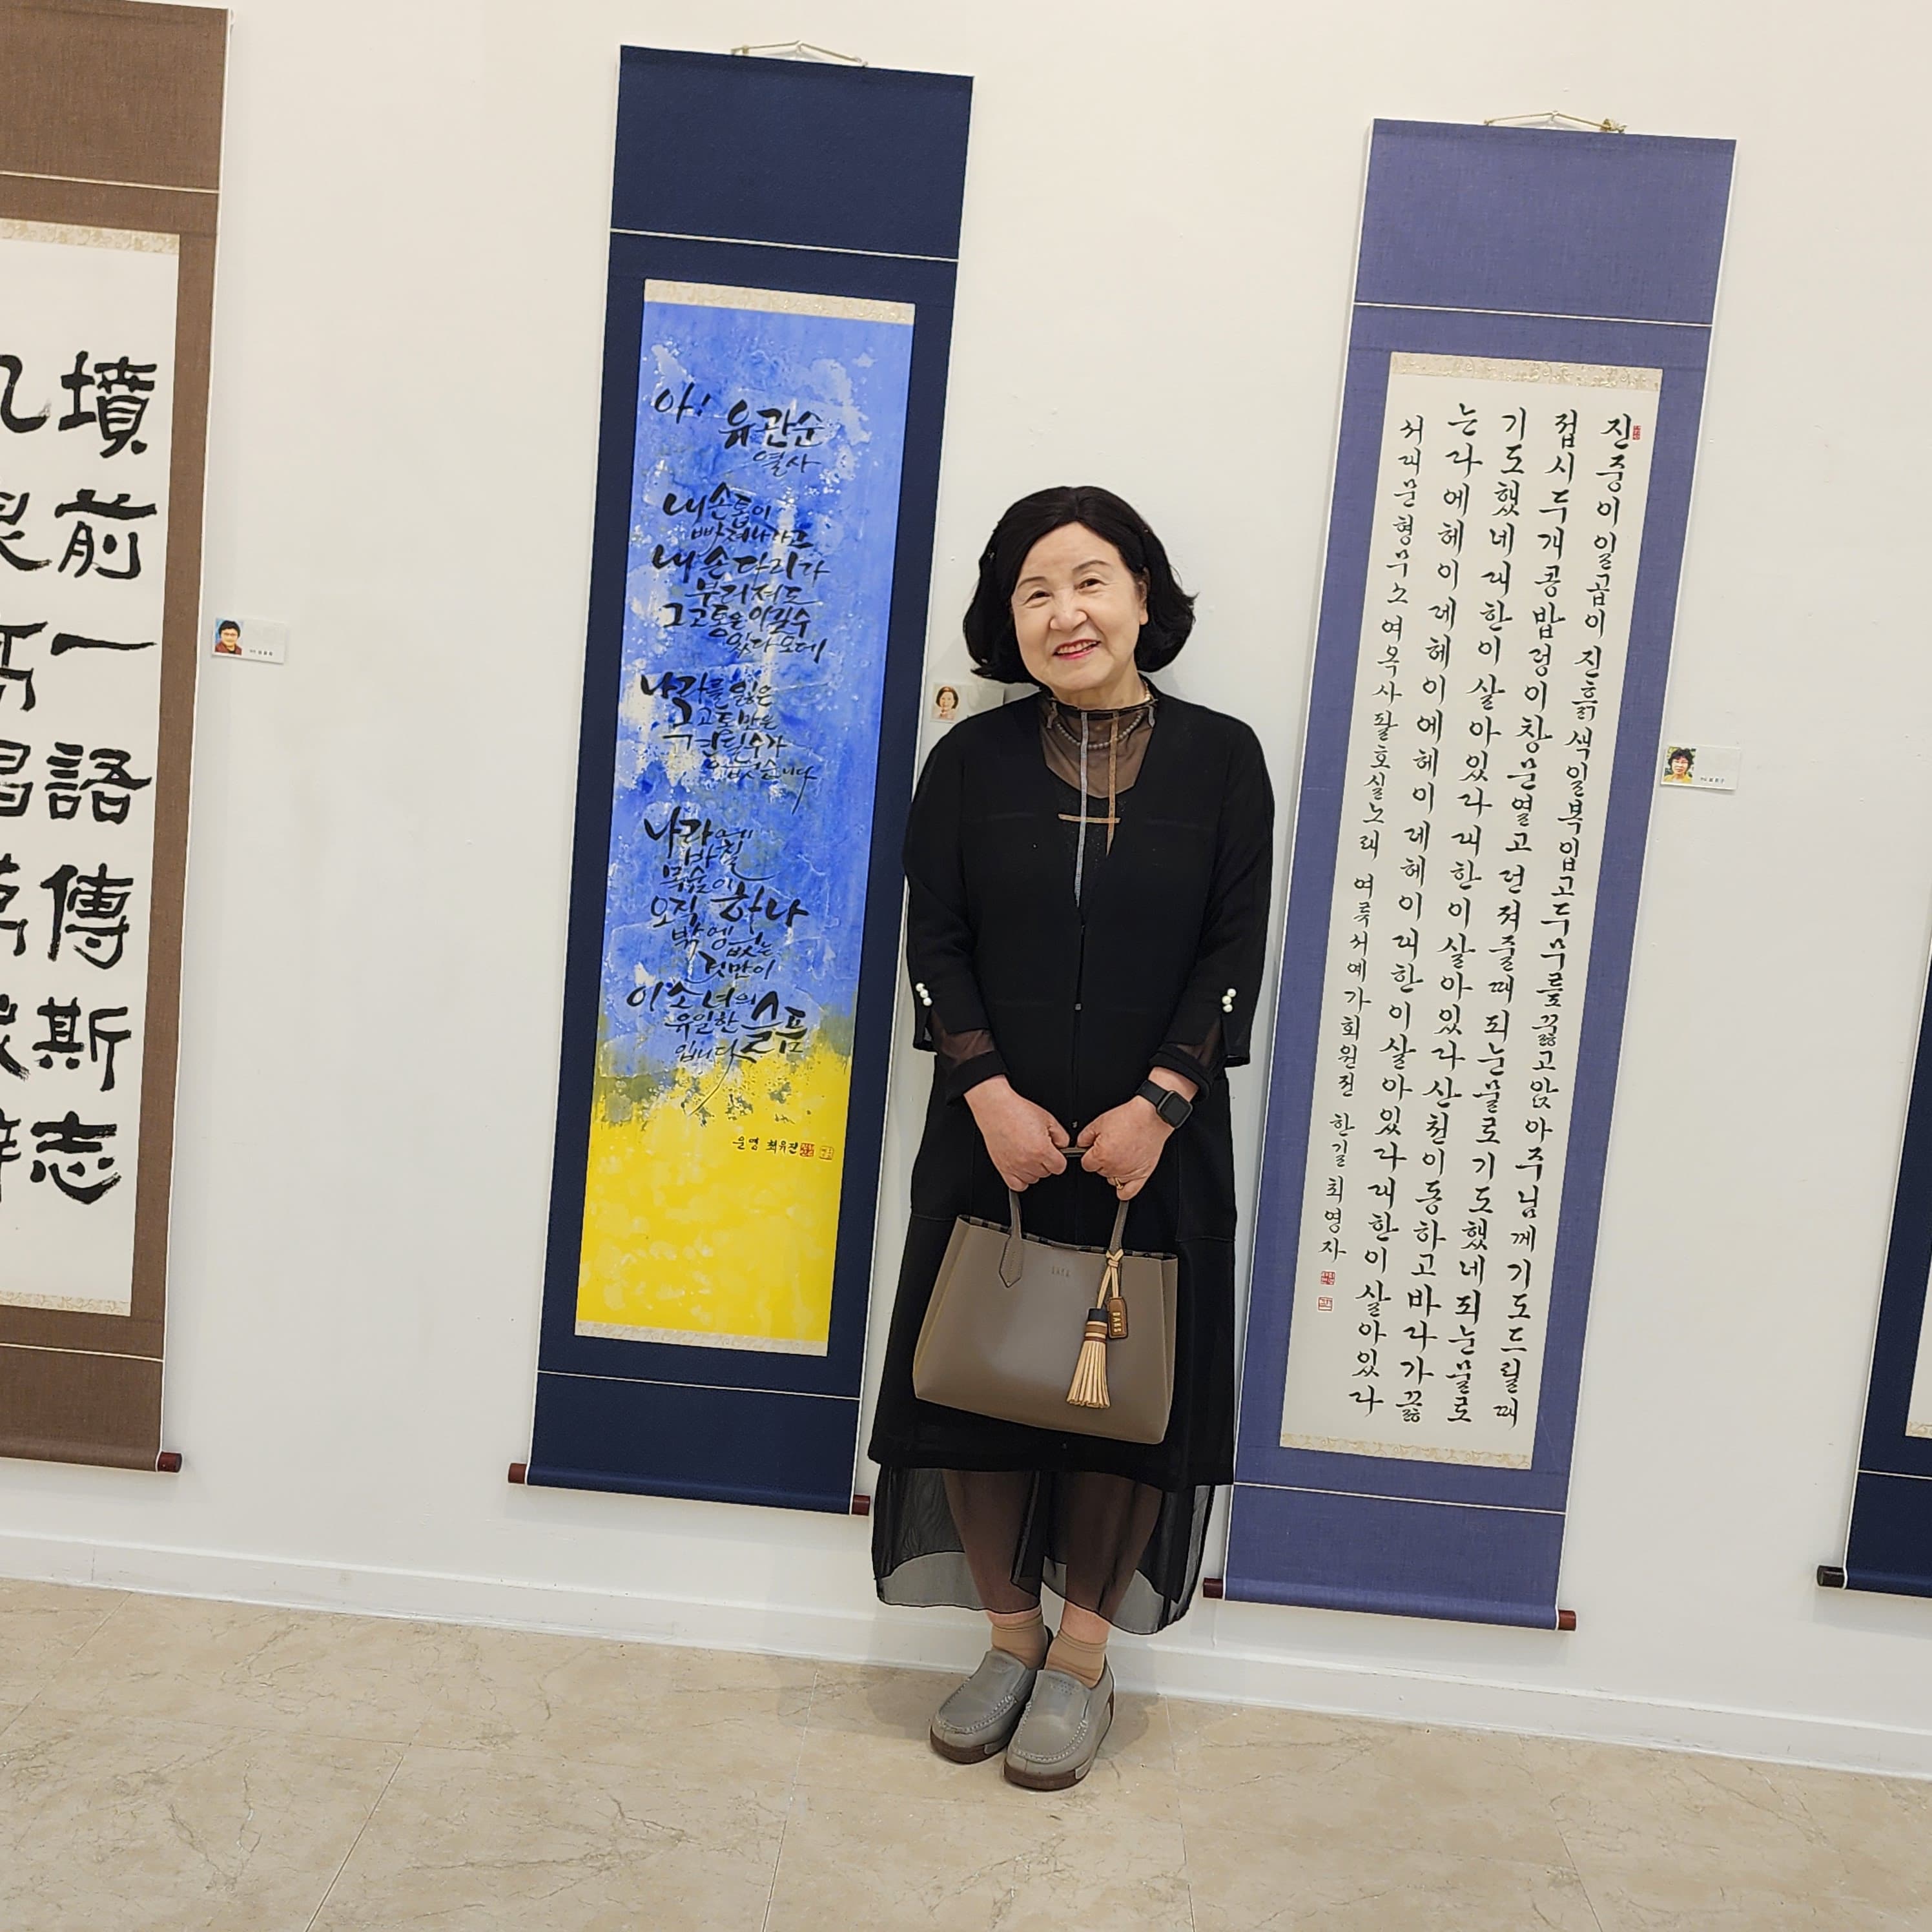 墳前一語傳斯志
아! 유관순
열사
내 손톱이
빠져나가고
내 손다리가
부러져도
그 고통은 이길 수
있사오나
나라를 잃은
그 고통만은
견딜 수가
없습니다
나라에
바칠
목숨이
오직 하나
밖에 없는
것만이
이 소녀의
유일한 슬픔
입니다
운영 최유진
진중이 일곱이 진흙색 일복 입고 두 무릎 꿇고 앉아 주님께 기도드릴 때
접시 두개 콩밥덩이 창문열고 던져줄때 피눈물로 기도했네 피눈물로
기도했네 대한이 살아있다 대한이 살아있다 산천이 동하고 바다가 끓
는다 에헤이 데헤이 에헤이 데헤이 대한이 살아있다 대한이 살아있다
서대문형무소 여옥사 팔호실 노래 여류서예가회원전 한길 최영자
DAKS